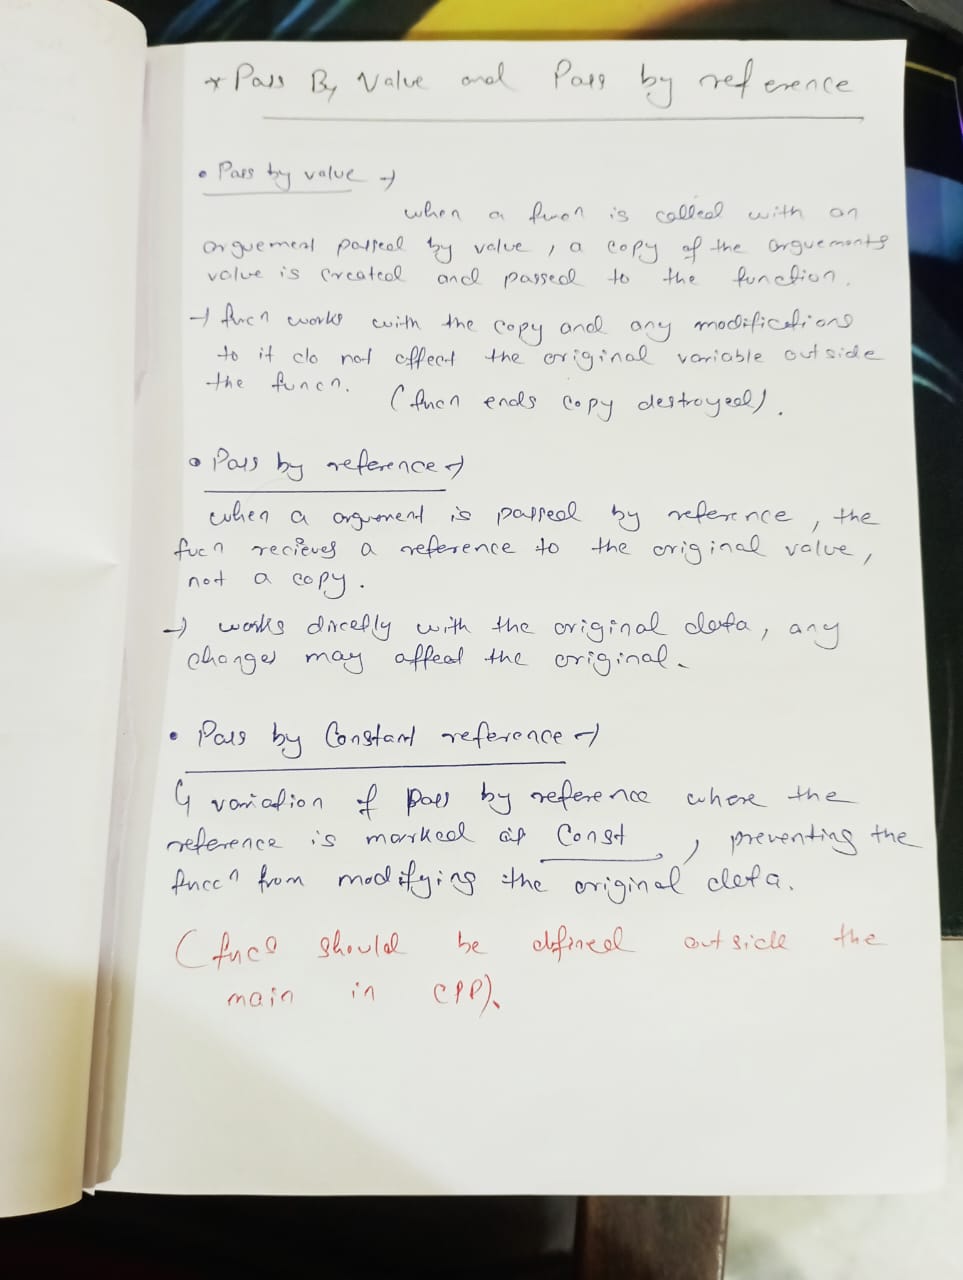 * Pass By Value and Pass by reference
• Pass by value →
when a funcn is called with an
arguement passed by value, a copy of the arguements
value is created and passed to the function.
→ funcn works with the copy and any modifications
to it do not affect the original variable outside
the funcn.
(funcn ends copy destroyed).
• Pass by reference →
when a argument is passed by reference, the
fucn recieves a reference to the original value,
not a copy.
→ works directly with the original data, any
changes may affect the original.
• Pass by Constant reference →
↳ variation of pass by reference where the
reference is marked as Const, preventing the
funccn from modifying the original data.
(func should be defined outside the
main in CPP).